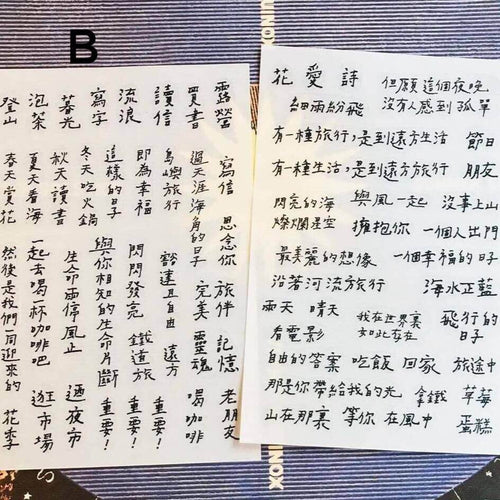 UNIOX
B
露營 寫信 思念你 旅伴 記憶 老朋友
買書 過天涯海角的日子 完美 靈魂 喝咖啡
讀信 島嶼旅行 豁達且自由 遠方 重要!
流浪 即為幸福 閃閃發亮 鐵道旅 重要!
寫字 這樣的日子 與你相知的生命片斷 重要!
暮光 冬天吃火鍋 生命雨停風止 週夜市
秋天讀書
泡茶 夏天看海 一起去喝一杯咖啡吧 逛市場
登山 春天賞花 然後是我們同迎來的 花季
花愛詩 但願這個夜晚
細雨紛飛 沒有人感到孤單
有一種旅行,是到遠方生活 節日
有一種生活,是到遠方旅行 朋友
閃亮的海 與風一起 沒事上山
燦爛星空 擁抱你 一個人出門
最美麗的想像 一個幸福的日子
沿著河流旅行 海水正藍
雨天 晴天 我在世界裏 飛行的
看電影 如此存在 日子
自由的答案 吃飯 回家 旅途中
那是你帶給我的光 拿鐵 草莓
山在那裏 等你 在風中 蛋糕